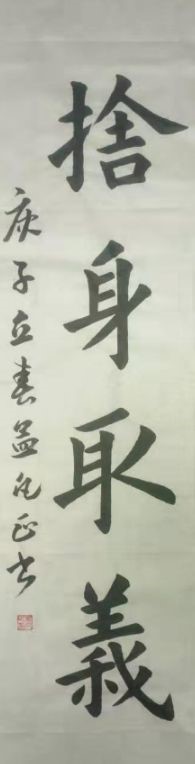 捨身取義
庚子立春孟凡正书